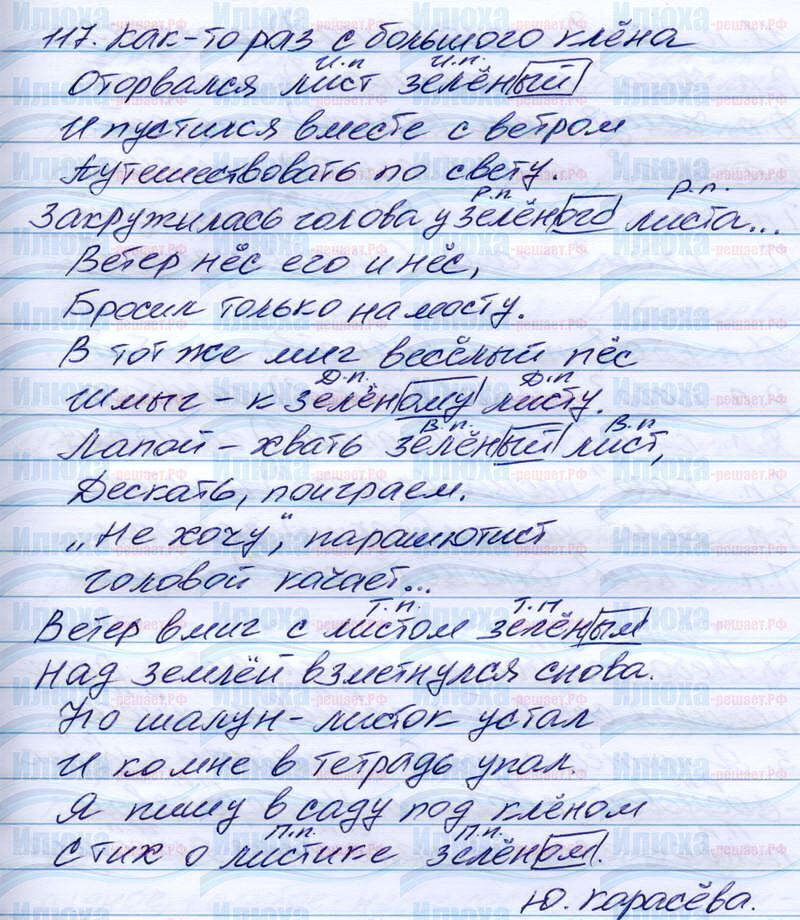 117. Как-то раз с большого клёна
И.п. И.п.
Оторвался лист зелёный
И пустился вместе с ветром
Путешествовать по свету.
Р.п. Р.п.
Закружилась голова у зелёного листа...
Ветер нёс его и нёс,
Бросил только на мосту.
В тот же миг весёлый пёс
Д.п. Д.п
Шмыг - к зелёному листу.
В.п. В.п
Лапой - хвать зелёный лист,
Дескать, поиграем.
„Не хочу“, парашютист
головой качает...
Т.п. Т.п
Ветер вмиг с листом зелёным
Над землёй взметнулся снова.
Но шалун-листок устал
И ко мне в тетрадь упал.
Я пишу в саду под клёном
П.п. П.п.
Стих о листике зелёном.
Ю. Карасёва.